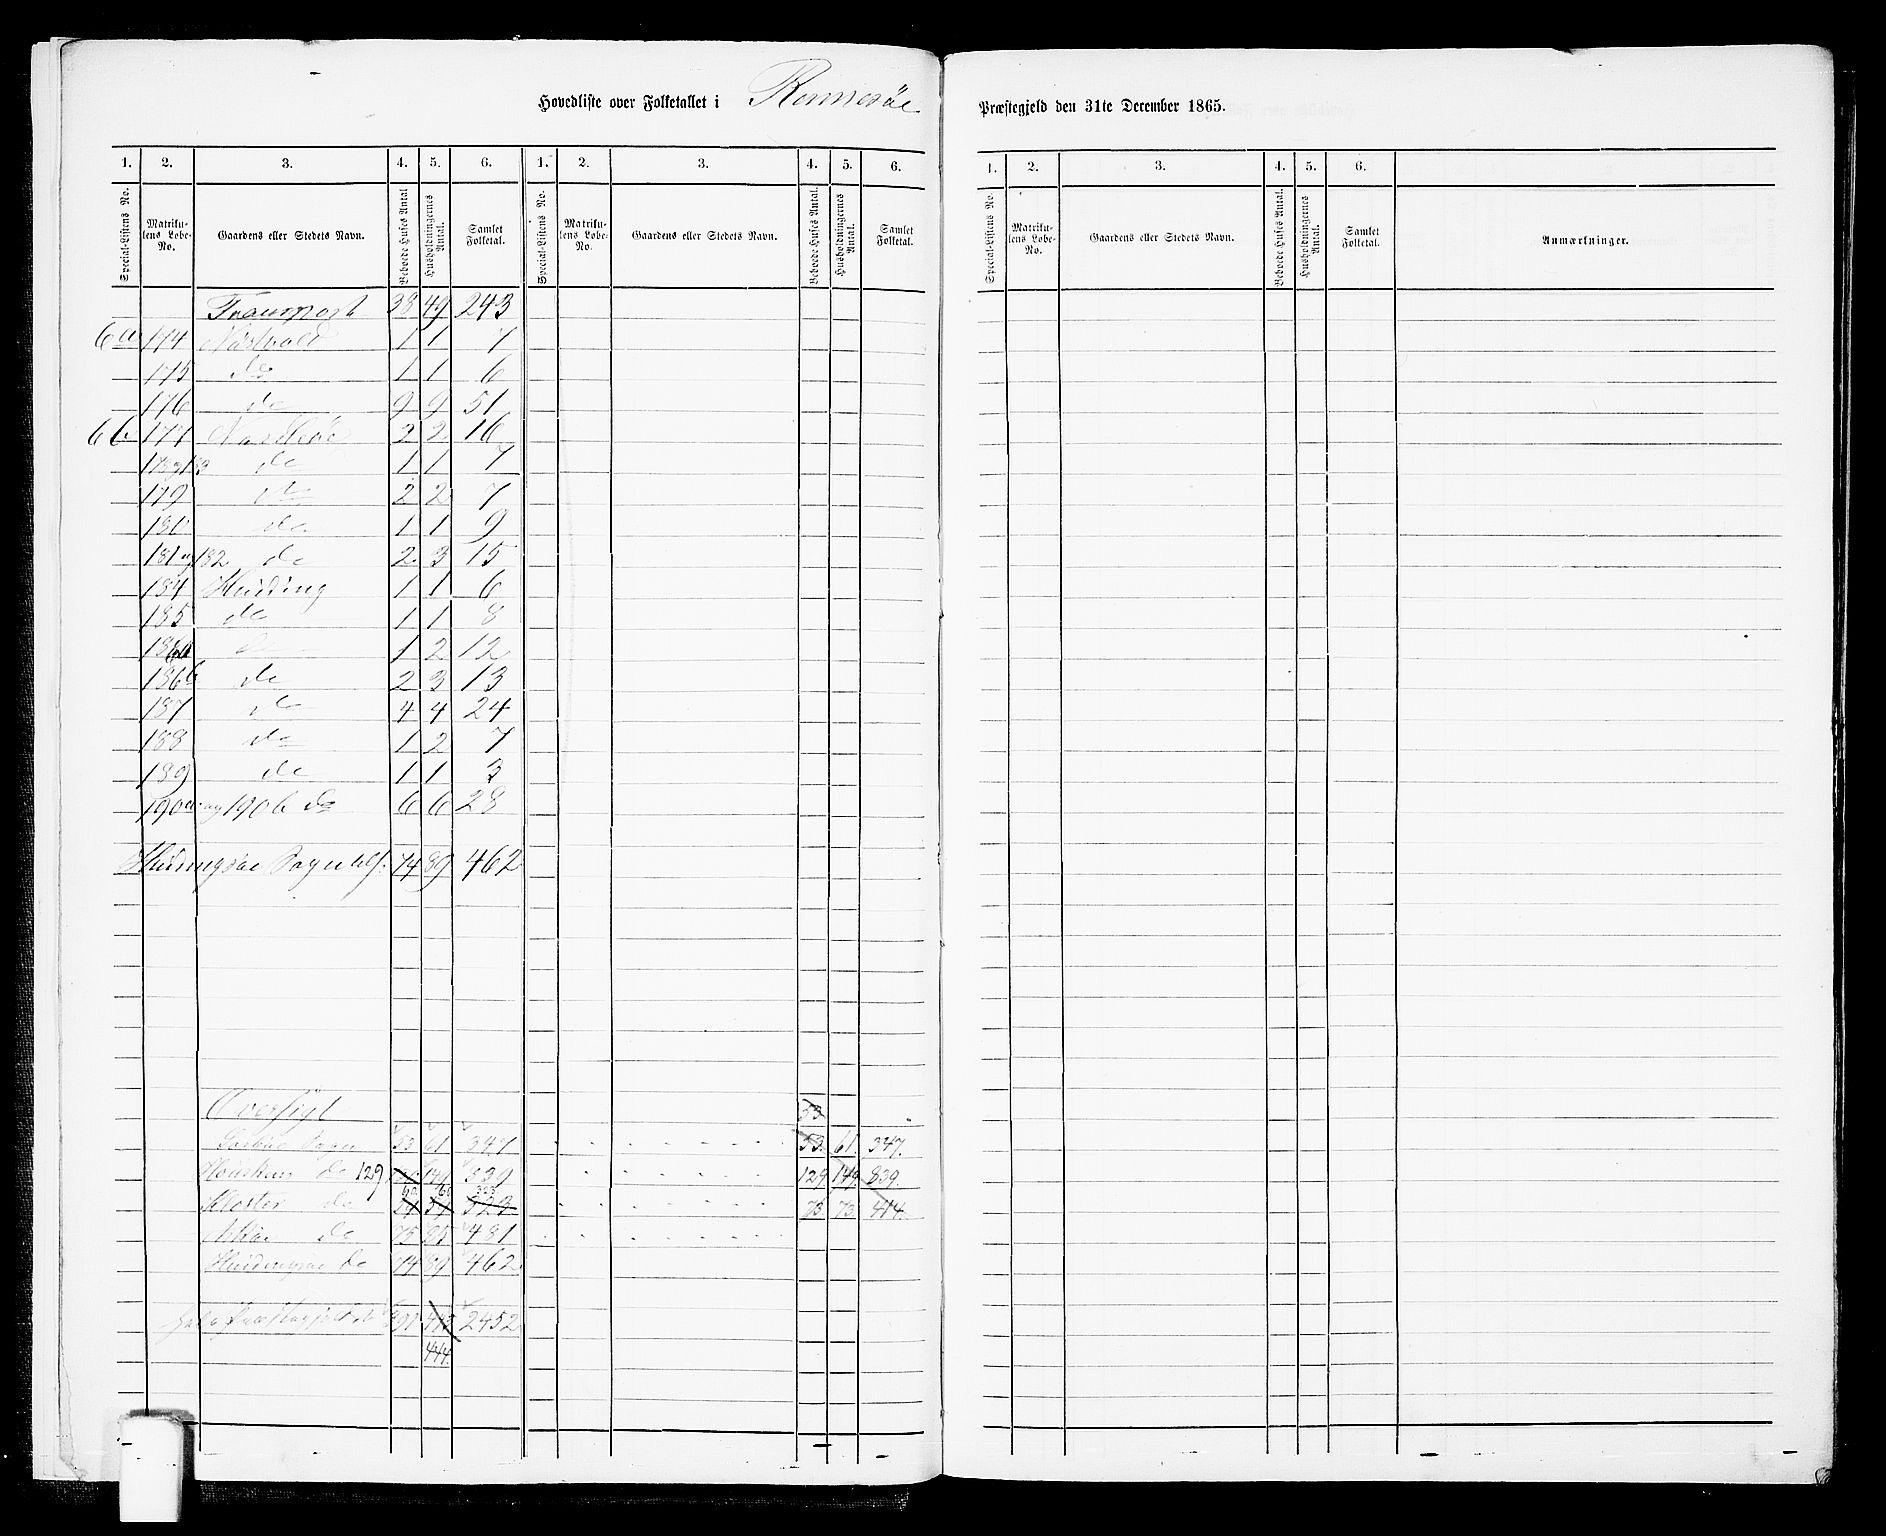 Hovedliste over Folketallet i Rennesøe Præstegjeld den 31te December 1865.
1. 2. 3. 4. 5. 6. 1. 2. 3. 4. 5. 6.
Special-Listens No. Matrikulens Løbe-No. Gaardens eller Stedets Navn. Beboede Huses Antal Husholdningernes Antal. Samlet Folketal. Special-Listens No. Matrikulens Løbe-No. Gaardens eller Stedets Navn. Beboede Huses Antal. Husholdningernes Antal. Samlet Folketal.
Transport 38 49 243
6a 174 1 1 7
175 do 1 1 6
176 do 9 9 51
6b 177 2 2 16
do 1 1 7
179 do 2 2 7
180 do 1 1 9
181 og 182 do 2 3 15
184 Hudding 1 1 6
185 do 1 1 8
186a do 1 2 12
186b do 2 3 13
187 do 4 4 24
188 do 1 2 7
189 do 1 1 3
190a og 190b do 6 6 28
74 89 462
Oversigt 53
Sogn 53 61 347 53. 61. 347.
do 129 149 839 129 149. 839.
60 60 323
Kloster do 323 73. 73. 414.
Askøe do 75 85 481
do 74 89 462
391 2452
444.
1. 2. 3. 4. 5. 6.
Special-Listens No. Matrikulens Løbe-No. Gaardens eller Stedets Navn. Beboede Huses Antal. Husholdningernes Antal. Samlet Folketal. Anmærkninger.